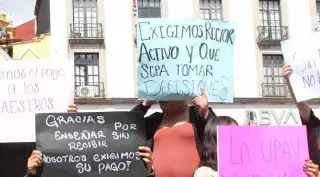 EXIGIMOS RECTOR
ACTIVO Y QUE
SEPA TOMAR
DECISIONES
EXIGIMOS el pago
a los
MAESTROS
GRACIAS POR
ENSEÑAR SIN
RECIBIR
NOSOTROS EXIGIMOS
SU PAGO!
LA UPAV